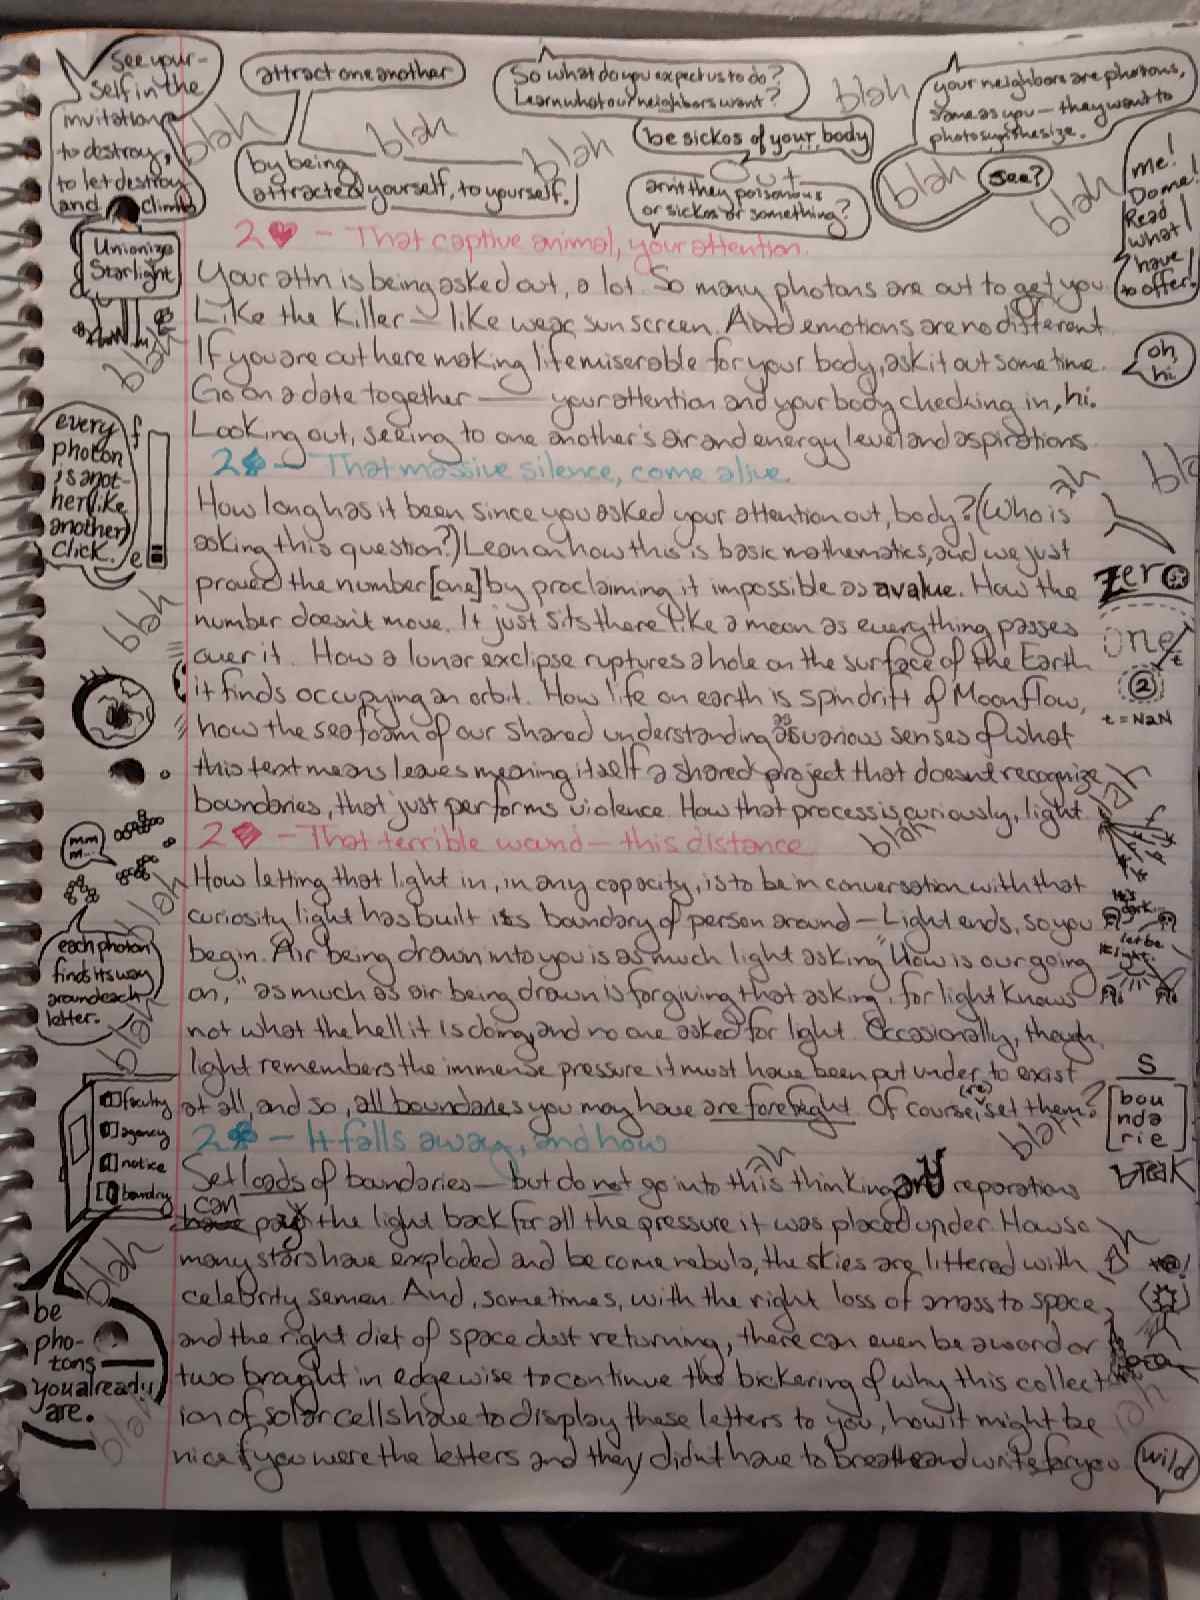 see your-
self in the
invitation
to destroy,
to let destroy
and climb
attract one another
by being
attracted yourself, to yourself.
So what do you expect us to do?
Learn what our neighbors want?
be sickos of your body
arn't they poisonous
or sickos or something?
your neighbors are photons,
same as you — they want to
photosynthesize.
see?
me!
Do me!
Read
what I
have
to offer!
blah
blah
blah
blah
blah
blah
Unionize
Starlight
2♥ - That captive animal, your attention.
Your attn is being asked out, a lot. So many photons are out to get you.
Like the Killer — like wear sunscreen. And emotions are no different.
If you are out here making life miserable for your body, ask it out sometime.
Go on a date together — your attention and your body checking in, hi.
Looking out, seeing to one another's air and energy level and aspirations.
oh,
hi
blah
every
photon
is anot-
her like
another
click.
f
e
2♠ - That massive silence, come alive.
How long has it been since you asked your attention out, body? (Who is
asking this question?) Lean on how this is basic mathematics, and we just
proved the number [one] by proclaiming it impossible as a value. How the
number doesn't move. It just sits there like a mean as everything passes
over it. How a lunar exclipse ruptures a hole on the surface of the Earth
it finds occupying an orbit. How life on earth is spindrift of Moonflow,
how the seafoam of our shared understanding as various senses of what
this text means leaves meaning itself a shared project that doesnt recognize
boundaries, that just performs violence. How that process is, curiously, light.
zero
one
t
2
t = NaN
blah
2♦ - That terrible wound — this distance
blah
How letting that light in, in any capacity, is to be in conversation with that
curiosity light has built its boundary of person around — Light ends, so you
begin. Air being drawn into you is as much light asking "How is our going
on," as much as air being drawn is forgiving that asking, for light knows
not what the hell it is doing, and no one asked for light. Occasionally, though,
light remembers the immense pressure it must have been put under to exist
at all, and so, all boundaries you may have are forelight. Of course, (re)set them?
mm
m...
each photon
finds its way
around each
letter.
blah
blah
it's
dark...
let be
light.
S
bou
nda
rie
break
blah
2♣ - It falls away, and how
Set loads of boundaries — but do not go into this thinking any reparations
can pay the light back for all the pressure it was placed under. How so
many stars have exploded and become nebula, the skies are littered with
celebrity semen. And, sometimes, with the right loss of a mass to space,
and the right diet of space dust returning, there can even be a word or
two brought in edgewise to continue the bickering of why this collect-
ion of solar cells have to display these letters to you, how it might be
nice if you were the letters and they didn't have to breathe and write for you
faculty
agency
notice
boundry
blah
be
pho-
tons —
you already
are.
blah
wild